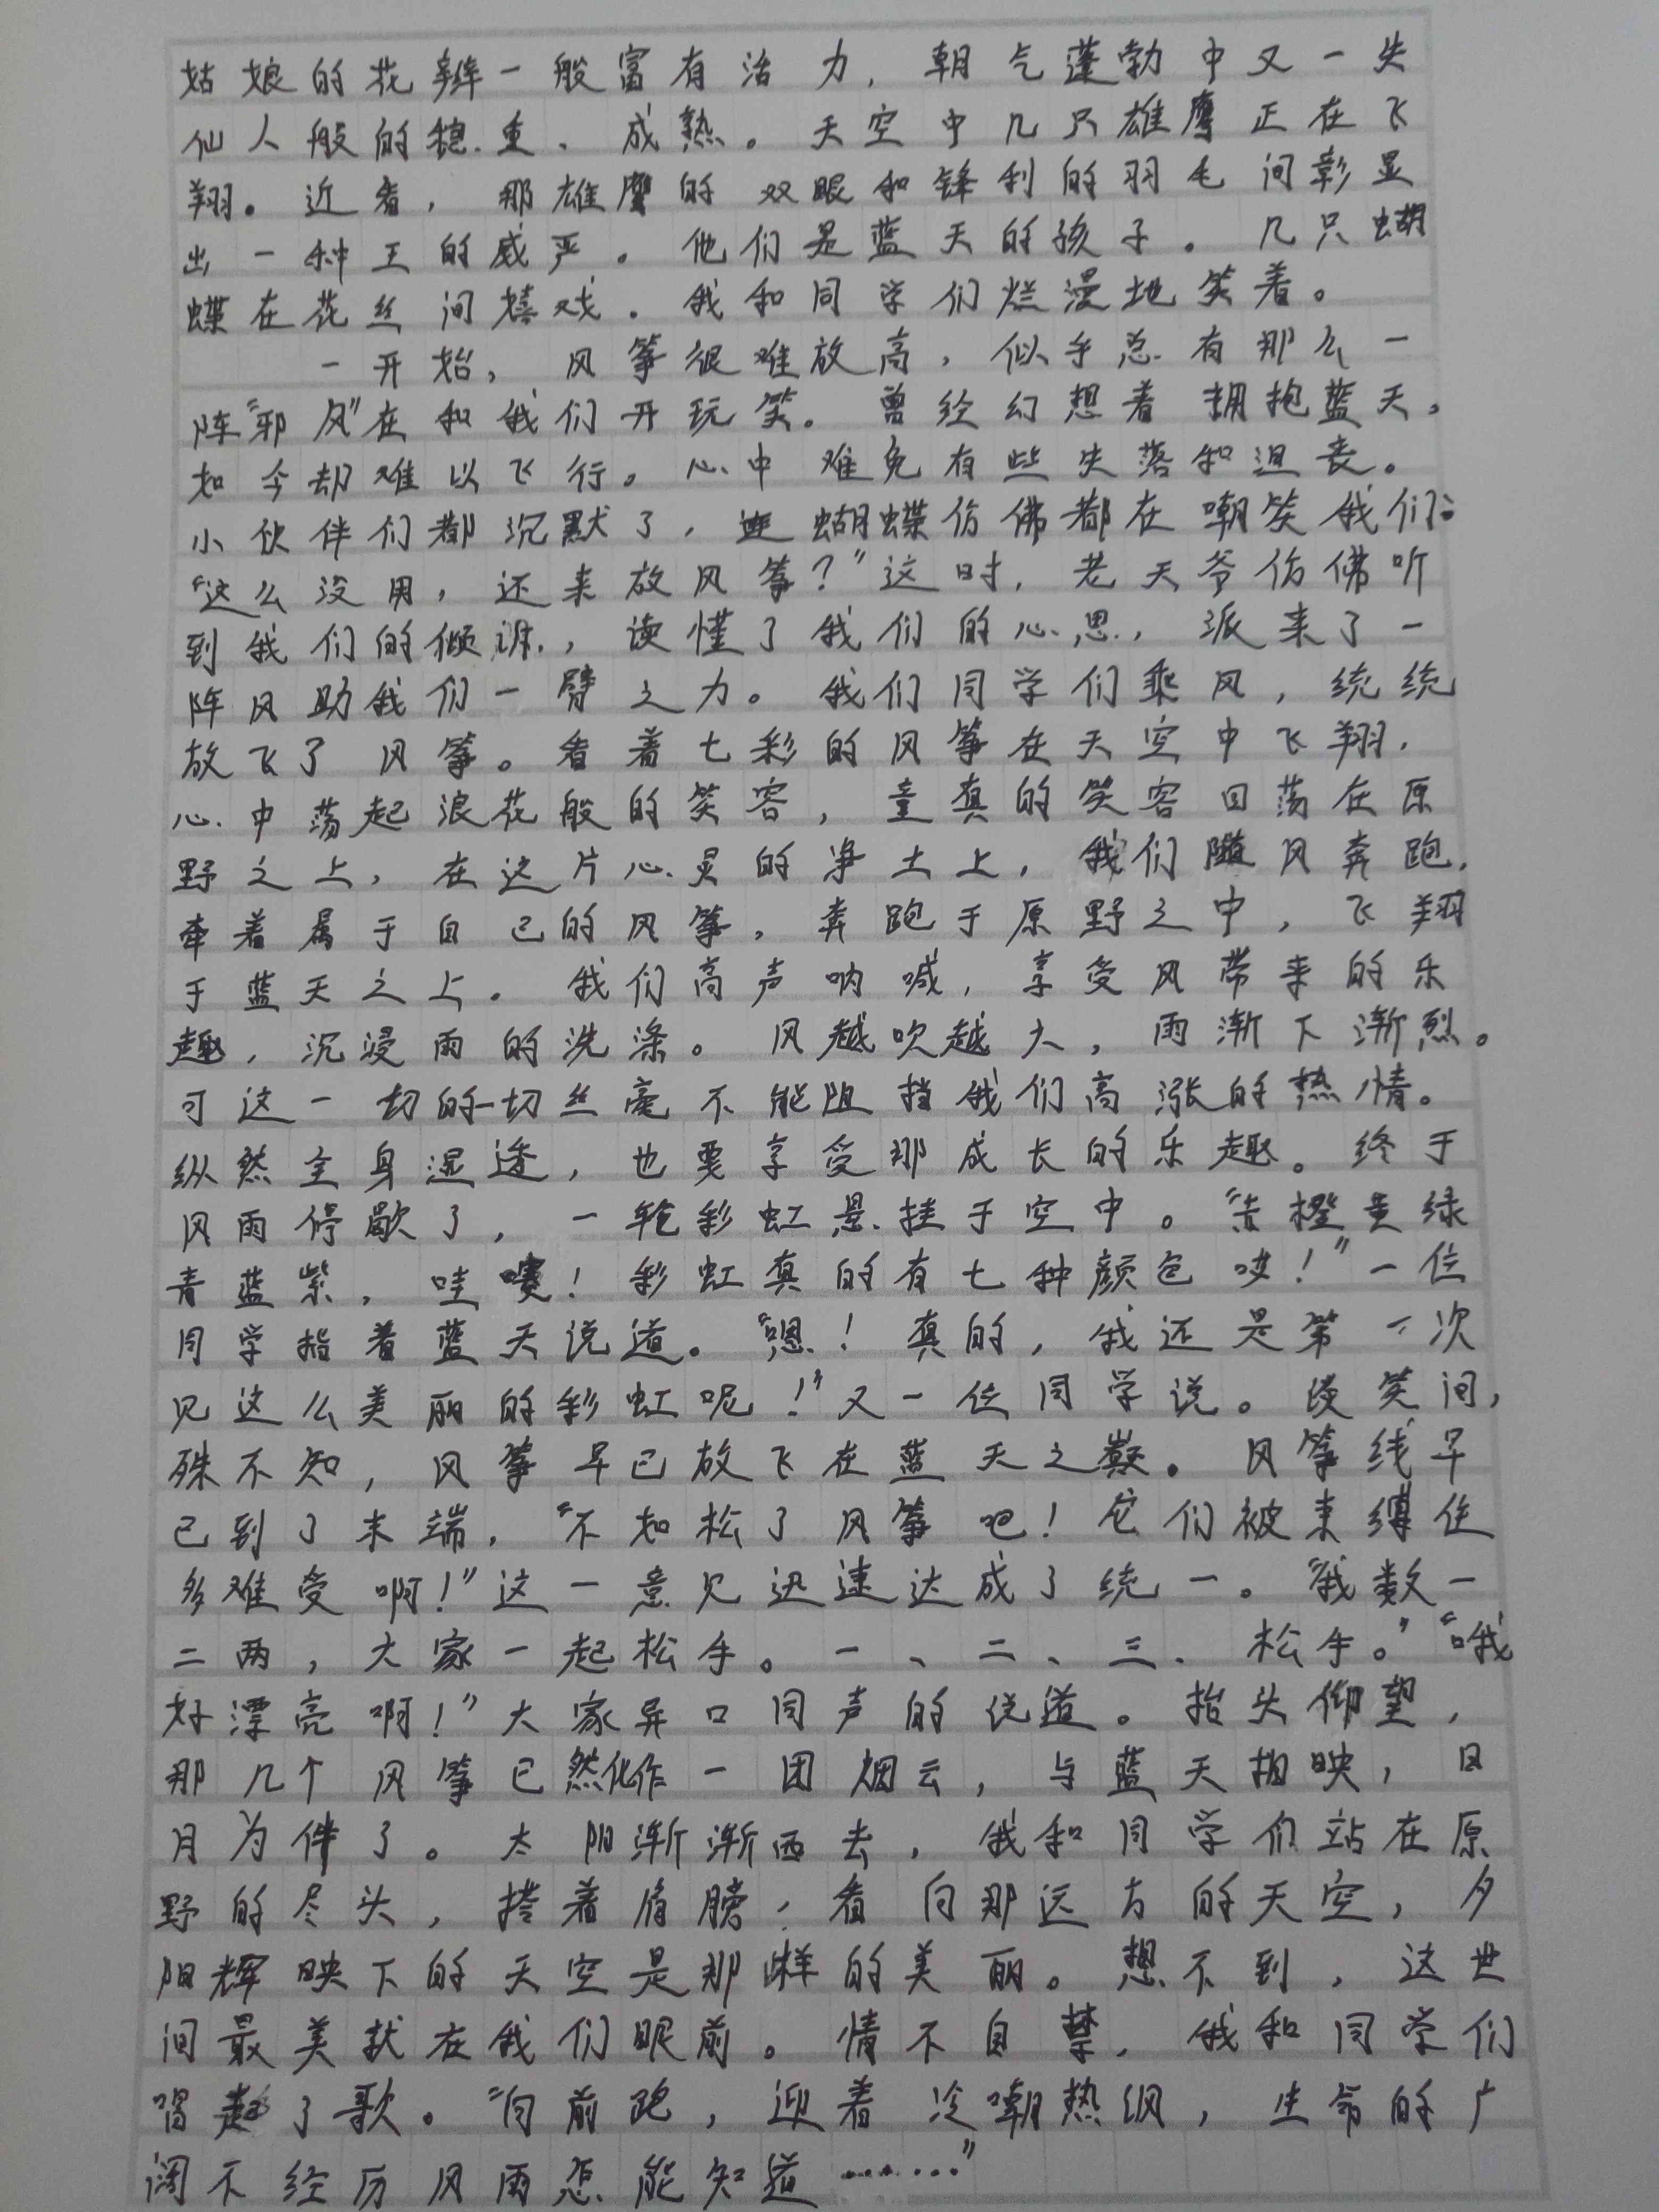 姑娘的花辫一般富有活力，朝气蓬勃中又一失
仙人般的稳重、成熟。天空中几只雄鹰正在飞
翔。近看，那雄鹰的双眼和锋利的羽毛间彰显
出一种王的威严。他们是蓝天的孩子。几只蝴
蝶在花丝间嬉戏。我和同学们烂漫地笑着。
一开始，风筝很难放高，似乎总有那么一
阵“邪风”在和我们开玩笑。曾经幻想着拥抱蓝天，
如今却难以飞行。心中难免有些失落和沮丧。
小伙伴们都沉默了，连蝴蝶仿佛都在嘲笑我们：
“这么没用，还来放风筝？”这时，老天爷仿佛听
到我们的倾诉，读懂了我们的心思，派来了一
阵风助我们一臂之力。我们同学们乘风，统统
放飞了风筝。看着七彩的风筝在天空中飞翔，
心中荡起浪花般的笑容，童真的笑容回荡在原
野之上，在这片心灵的净土上，我们随风奔跑，
牵着属于自己的风筝，奔跑于原野之中，飞翔
于蓝天之上。我们高声呐喊，享受风带来的乐
趣，沉浸雨的洗涤。风越吹越大，雨渐下渐烈。
可这一切的一切丝毫不能阻挡我们高涨的热情。
纵然全身湿透，也要享受那成长的乐趣。终于
风雨停歇了，一轮彩虹悬挂于空中。“赤橙黄绿
青蓝紫，哇噻！彩虹真的有七种颜色哎！”一位
同学指着蓝天说道。“嗯！真的，我还是第一次
见这么美丽的彩虹呢！”又一位同学说。谈笑间，
殊不知，风筝早已放飞在蓝天之巅。风筝线早
已到了末端，“不如松了风筝吧！它们被束缚住
多难受啊！”这一意见迅速达成了统一。“我数一
二两，大家一起松手。一、二、三、松手。”“哦
好漂亮啊！”大家异口同声的说道。抬头仰望，
那几个风筝已然化作一团烟云，与蓝天相映，日
月为伴了。太阳渐渐西去，我和同学们站在原
野的尽头，搭着肩膀，看向那远方的天空，夕
阳辉映下的天空是那样的美丽。想不到，这世
间最美就在我们眼前。情不自禁，我和同学们
唱起了歌。“向前跑，迎着冷嘲热讽，生命的广
阔不经历风雨怎能知道………”